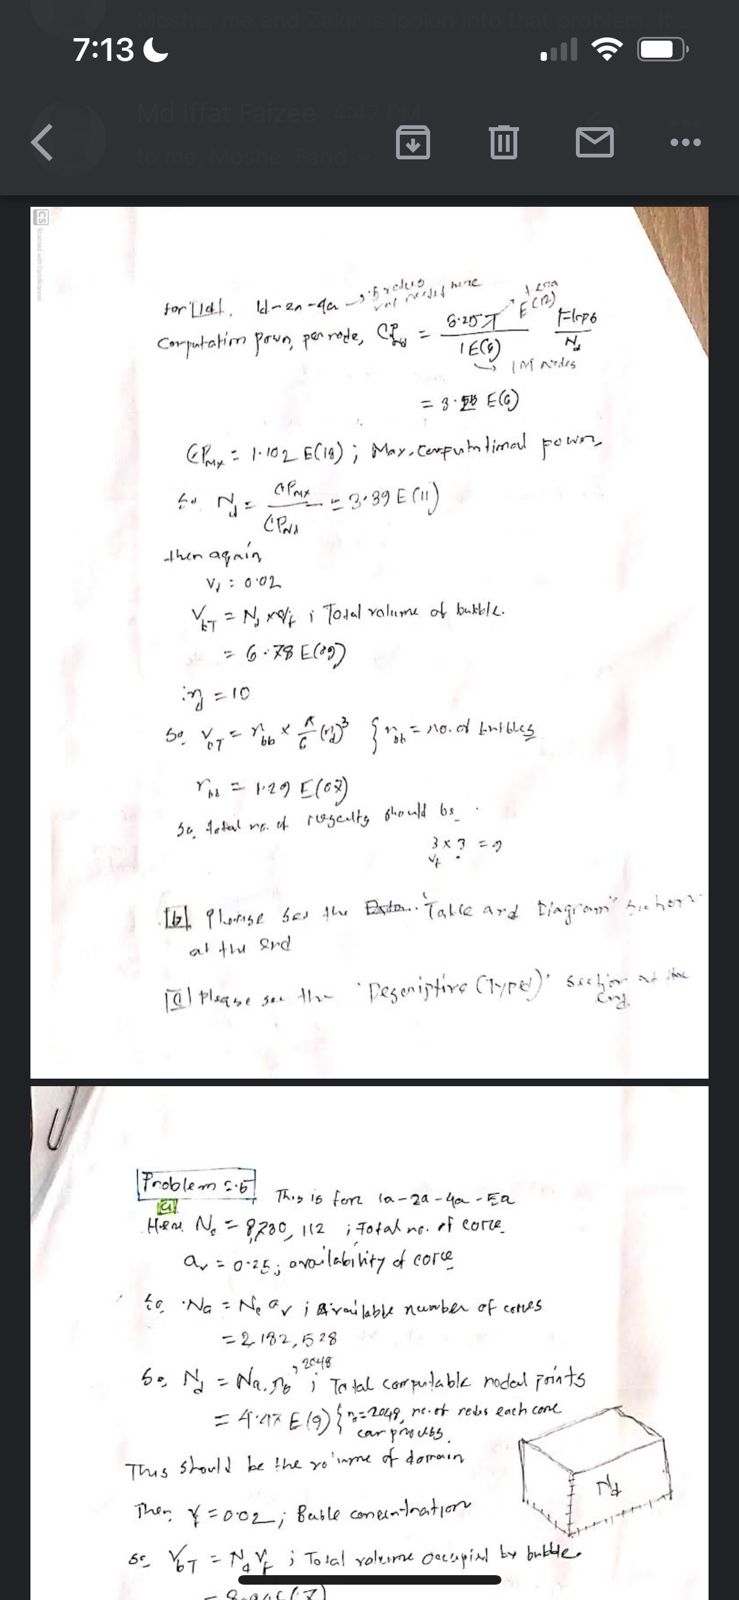 7:13
Moshe, me and Zakir is lookin into that problem. It...
Md Iffat Faizee 4:47 PM
to me, Moshe, Farid
CS Scanned with CamScanner
1a-2a-4a
Computation power per node, CP = 6.25T E(12) Flops
1E(6) Nd
1M nodes
= 3.25 E(6)
CPMX = 1.102 E(18) ; Max. computational power
so Nd = CPMX / CPNd = 3.39 E(11)
then again
Vf = 0.02
VbT = Nd × Vf ; Total volume of bubble.
= 6.78 E(09)
= 10
so VbT = nbb × π/6 (nd)³ { nbb = no. of bubbles
nbb = 1.29 E(07)
so, total no. of results should be
3 × 3 = 9
Vf
[b] Please see the "Table and Diagram" section
at the end
Please see the "Descriptive (Type)" section at the
end
Problem 2.5
[a] This is for 1a-2a-4a-5a
Here Nc = 8,730,112 ; Total no. of core
av = 0.25 ; availability of core
so Na = Nc av ; Available number of cores
= 2182,528
2048
so Nd = Na.no ; Total computable nodal points
= 4.47 E(9) { n=2048, no. of nodes each core
can process
This should be the volume of domain
Nd
Then, Vf = 0.02 ; Buble concentration
so VbT = Nd Vf ; Total volume occupied by bubble